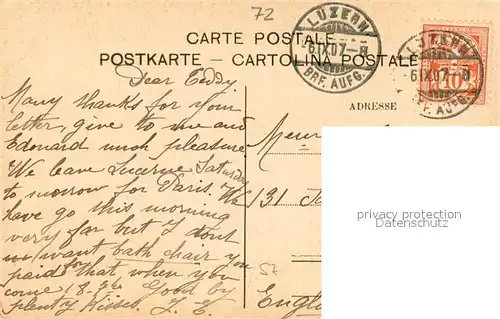 72
CARTE POSTALE
POSTKARTE — CARTOLINA POSTALE
LUZERN
6.IX.07.-8
BRF. AUFG.
LUZERN
6.IX.07.-8
BRF. AUFG.
10
ADRESSE
Dear Eddy
Many thanks for your
letter, give to me and
Edouard much pleasure
We leave Lucerne Saturday
to morrow for Paris. We
have go this morning
very far but I dont
want bath chair you
paid for that when you
come 18. Good by
plenty kisses.
131
Engl
57
privacy protection
www.oldthing.de